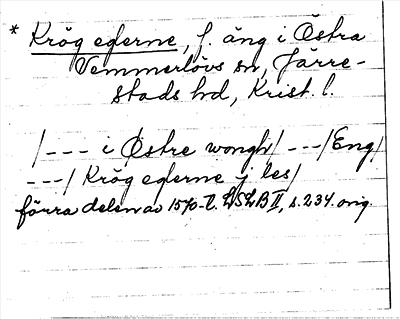 * Krög ederne, f. äng i Östra
Vemmerlövs sn, Järre-
stads hd, Krist. l.
/--- i Östre wongh/ ---/Eng/
---/ Krög ederne j les/
förra delen av 1570-t. LSLB II, s. 234. orig.